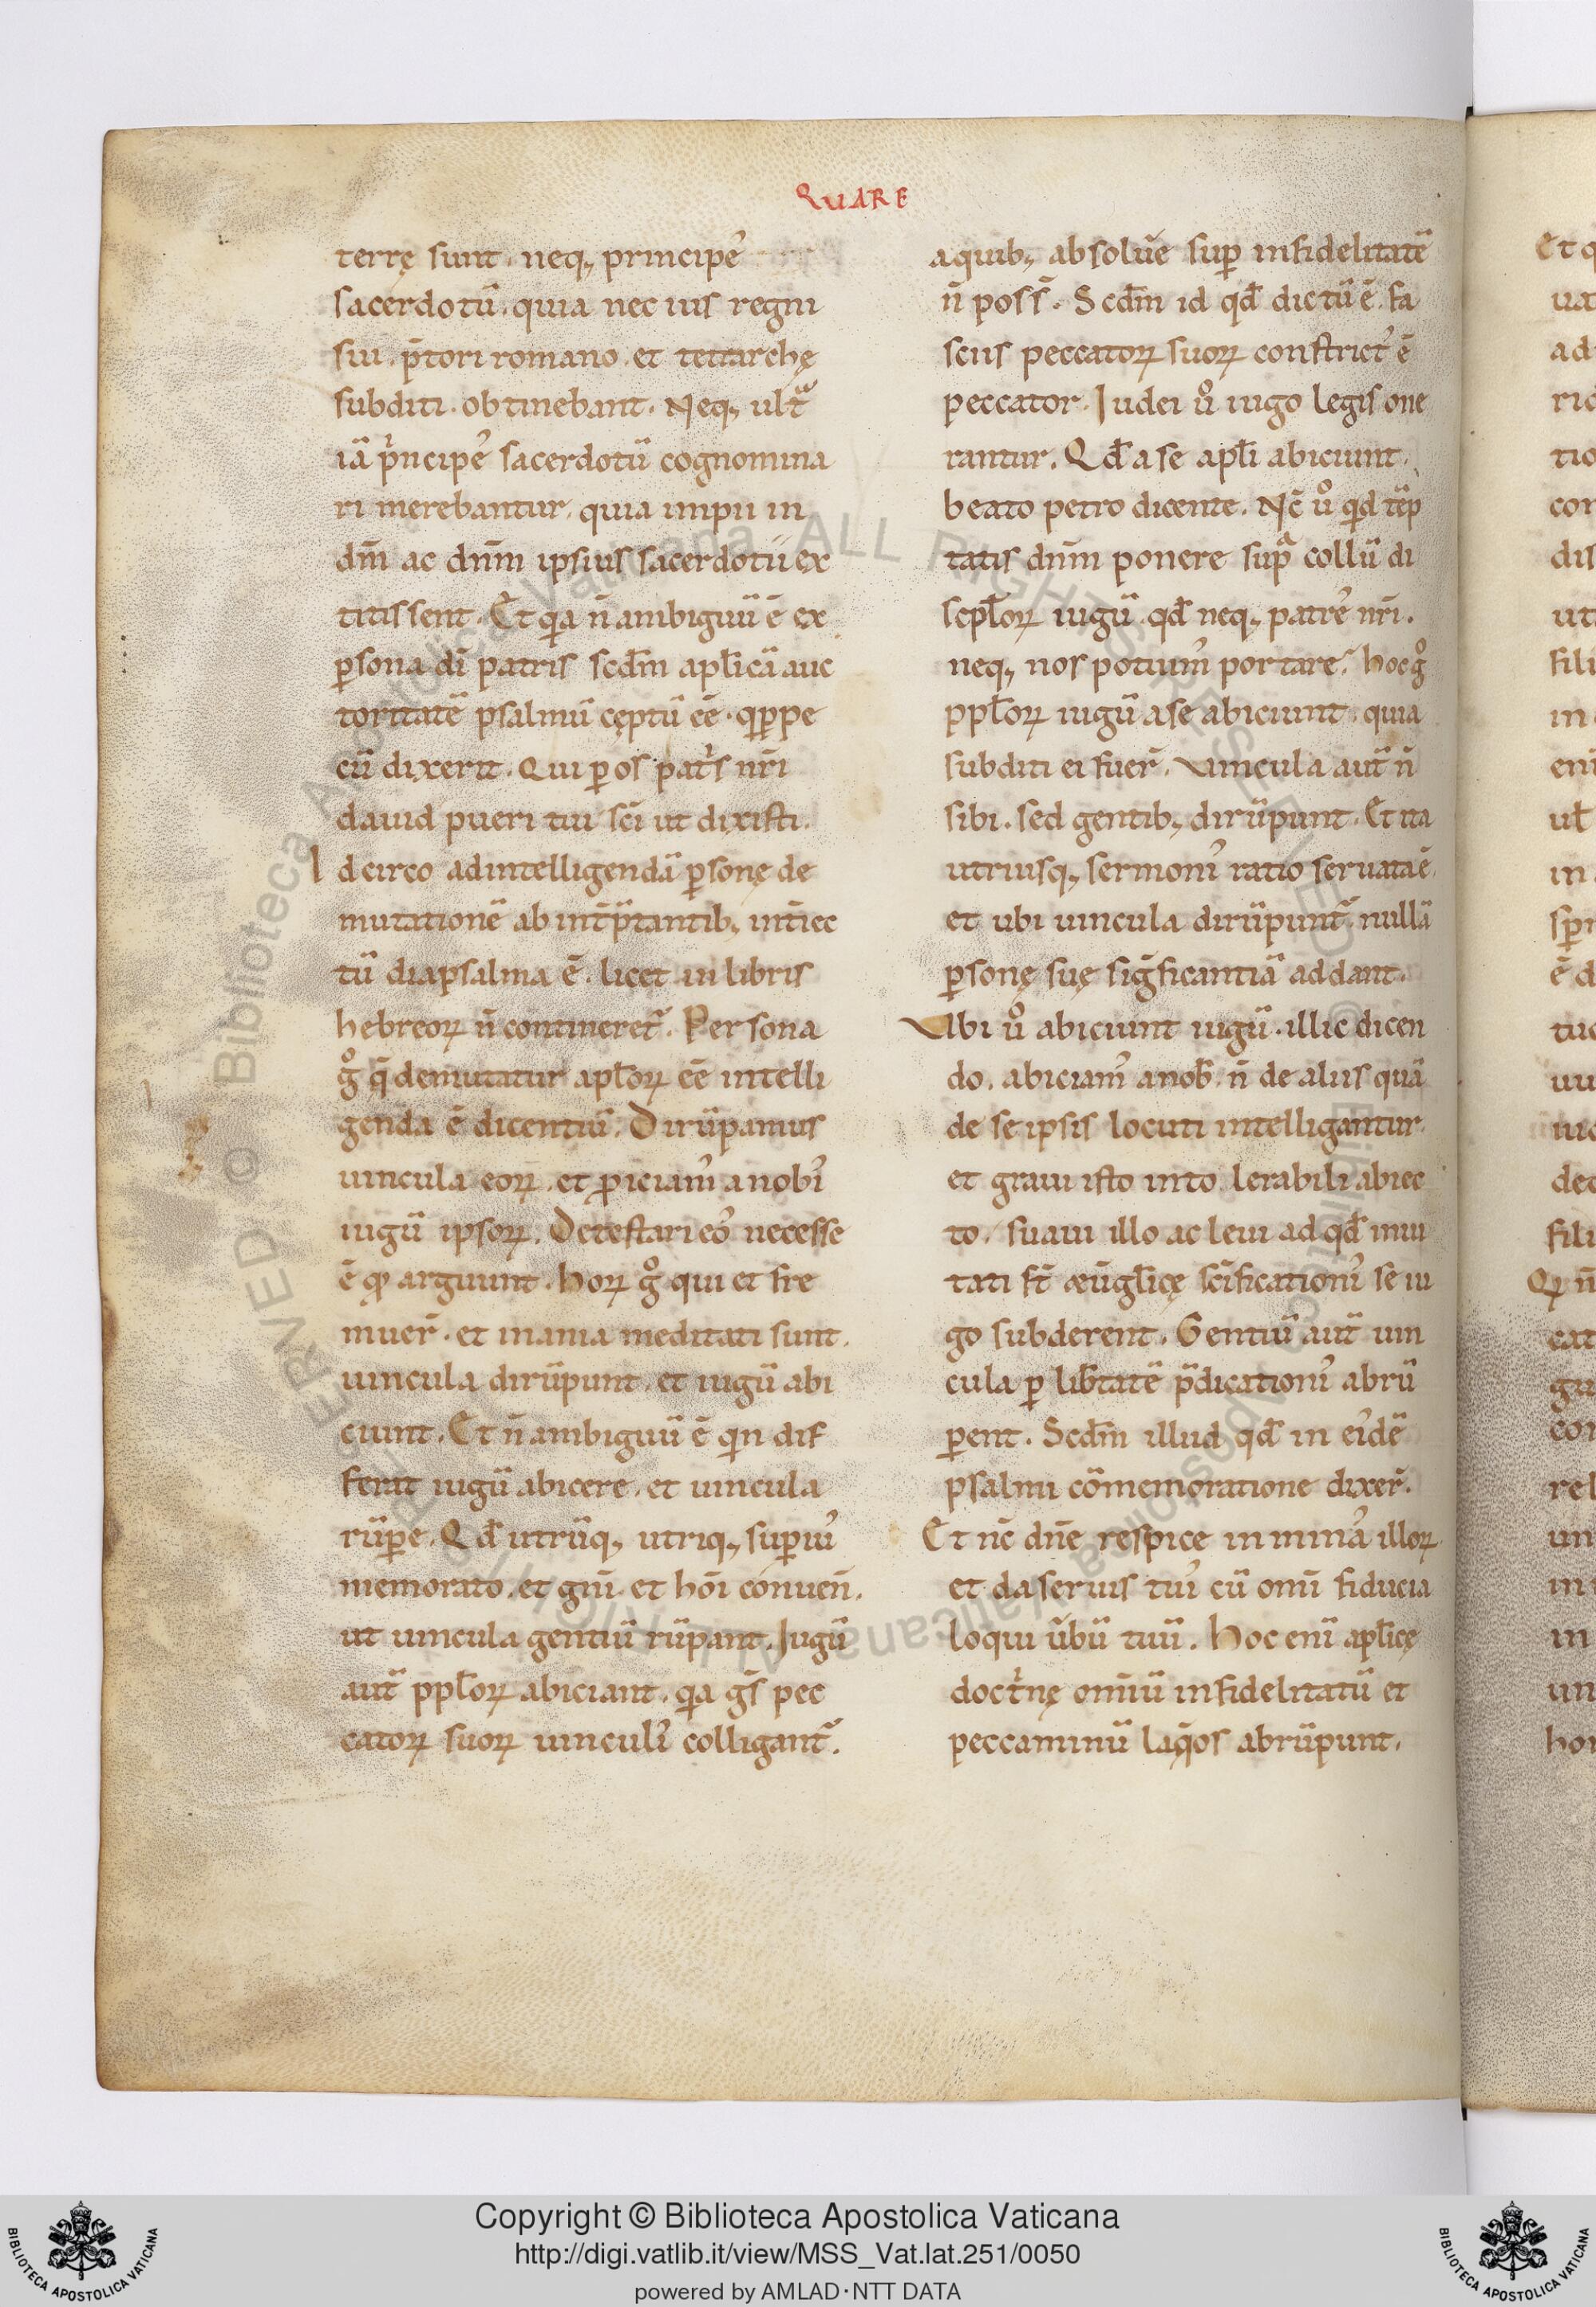 QUARE
terrę sunt. neq; principeʼ
sacerdotū. quia nec ius regni
sui. p̄tori romano. et tettarchę
subditi. obtinebant. Neq; ult̄
iā pͥncipeʼ sacerdotū cognomina
ri merebantur. quia impii in
dm̄ ac dnm̄ ipsius sacerdotū ex
titissent. Et qa n̄ ambiguū ē ex
ꝑsona dī patris scdm̄ apl̄icā auc
toritatē psalmū cęptū eē. qꝑpe
cū dixerit. Qui ꝑ os patͥs nr̄i
dauid pueri tui sc̄i ut dixisti.
Idcirco ad intelligendā ꝑsonę de
mutationē ab int̄p̄tantib; int̄iec
tū diapsalma ē. licet in libris
hebreoꝝ n̄ contineret̄. Persona
gͦ q̄ demutatur apl̄oꝝ eē intelli
genda ē dicentiū. Dirūpamus
uincula eoꝝ. et ꝓiciamʼ a nobiʼ
iugū ipsoꝝ. Detestari eoʼ necesse
ē qͦ arguunt. hoꝝ gͦ qui et fre
muer̄. et inania meditati sunt.
uincula dirūpunt. et iugū abi
ciunt. Et n̄ ambiguū ē qͥn dif
ferat iugū abicere. et uincula
rūꝑe. Qd̄ utrūq; utriq; suꝑiuʼ
memorato. et gn̄i et hōi conuen̄.
ut uincula gentiū rūpant. Iugū
aut̄ ppl̄oꝝ abiciant. qa gs̄ pec
catoꝝ suoꝝ uinculiʼ colligant̄.
a quib; absolue suꝑ infidelitatē
n̄ poss̄. Scdm̄ id qd̄ dictū ē. fa
sciis peccatoꝝ suoꝝ constrictʼ ē
peccator. Iudei uͦ iugo legis one
rantur. Qd̄ a se apl̄i abiciunt.
beato petro dicente. Nc̄ uͦ qd tēp
tatis dnm̄ ponere supᵃ collū di
scpl̄oꝝ iugū. qd̄ neq; patreʼ nr̄i.
neq; nos potuimʼ portare. hoc gͦ
ppl̄oꝝ iugū a se abiciunt. quia
subditi ei fuer̄. Vincula aut̄ n̄
sibi. sed gentib; dirūpunt. Et ita
utriusq; sermoniʼ ratio seruata ē.
et ubi uincula dirūpunt̄. nullā
ꝑsonę suę sigͥficantiā addant.
Vbi uͦ abiciunt iugū. illic dicen
do. abiciamʼ a nob̄. n̄ de aliis quā
de se ipsis locuti intelligantur.
et graui isto into lerabili abiec
to. suaui illo ac leui ad qd̄ inui
tati st̄ æūgl̄icę sc̄ificationiʼ se iu
go subderent. Gentiū aut̄ uin
cula ꝑ lib̄tatē p̄dicationiʼ abrū
ꝑent. Scdm̄ illud qd̄ in eiʼdē
psalmi cōmemoratione dixer̄.
Et nc̄ dn̄e respice in minaʼ illoꝝ.
et da seruis tuiʼ cū omī fiducia
loqui ūbū tuū. Hoc enī apl̄icę
doctͥnę omīū infidelitatū et
peccaminū laq̄os abrūpunt.
Copyright © Biblioteca Apostolica Vaticana
http://digi.vatlib.it/view/MSS_Vat.lat.251/0050
powered by AMLAD·NTT DATA